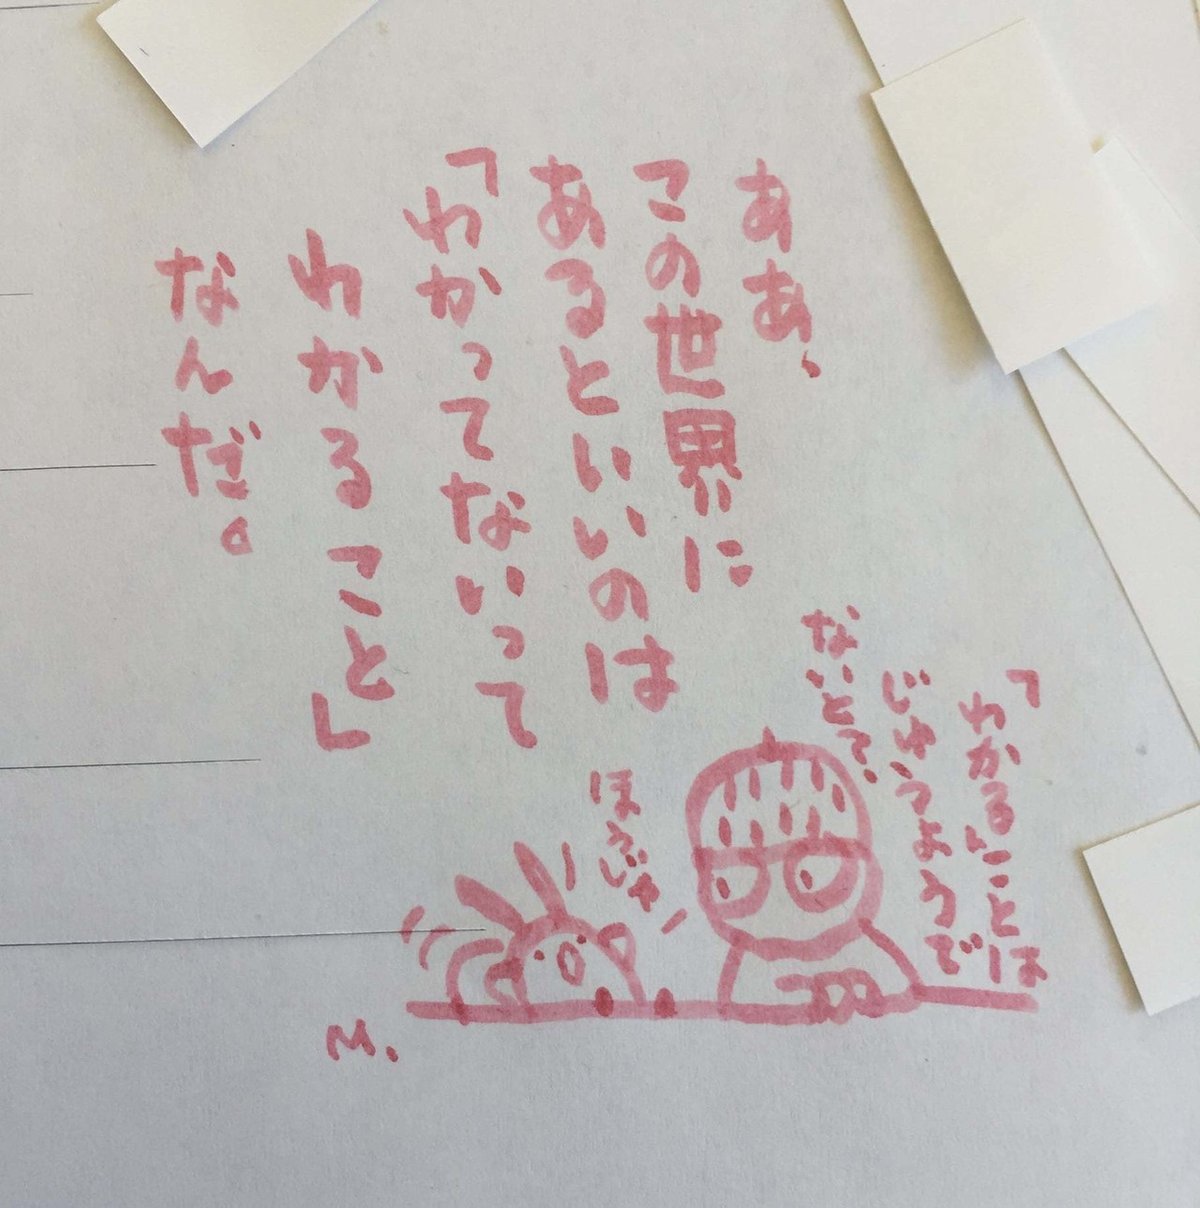 ああ、
この世界に
あるといいのは
「わかってないって
わかること」
なんだ。
「わかることは
じゅうようで
ないとて。
ほうじゃ
M.